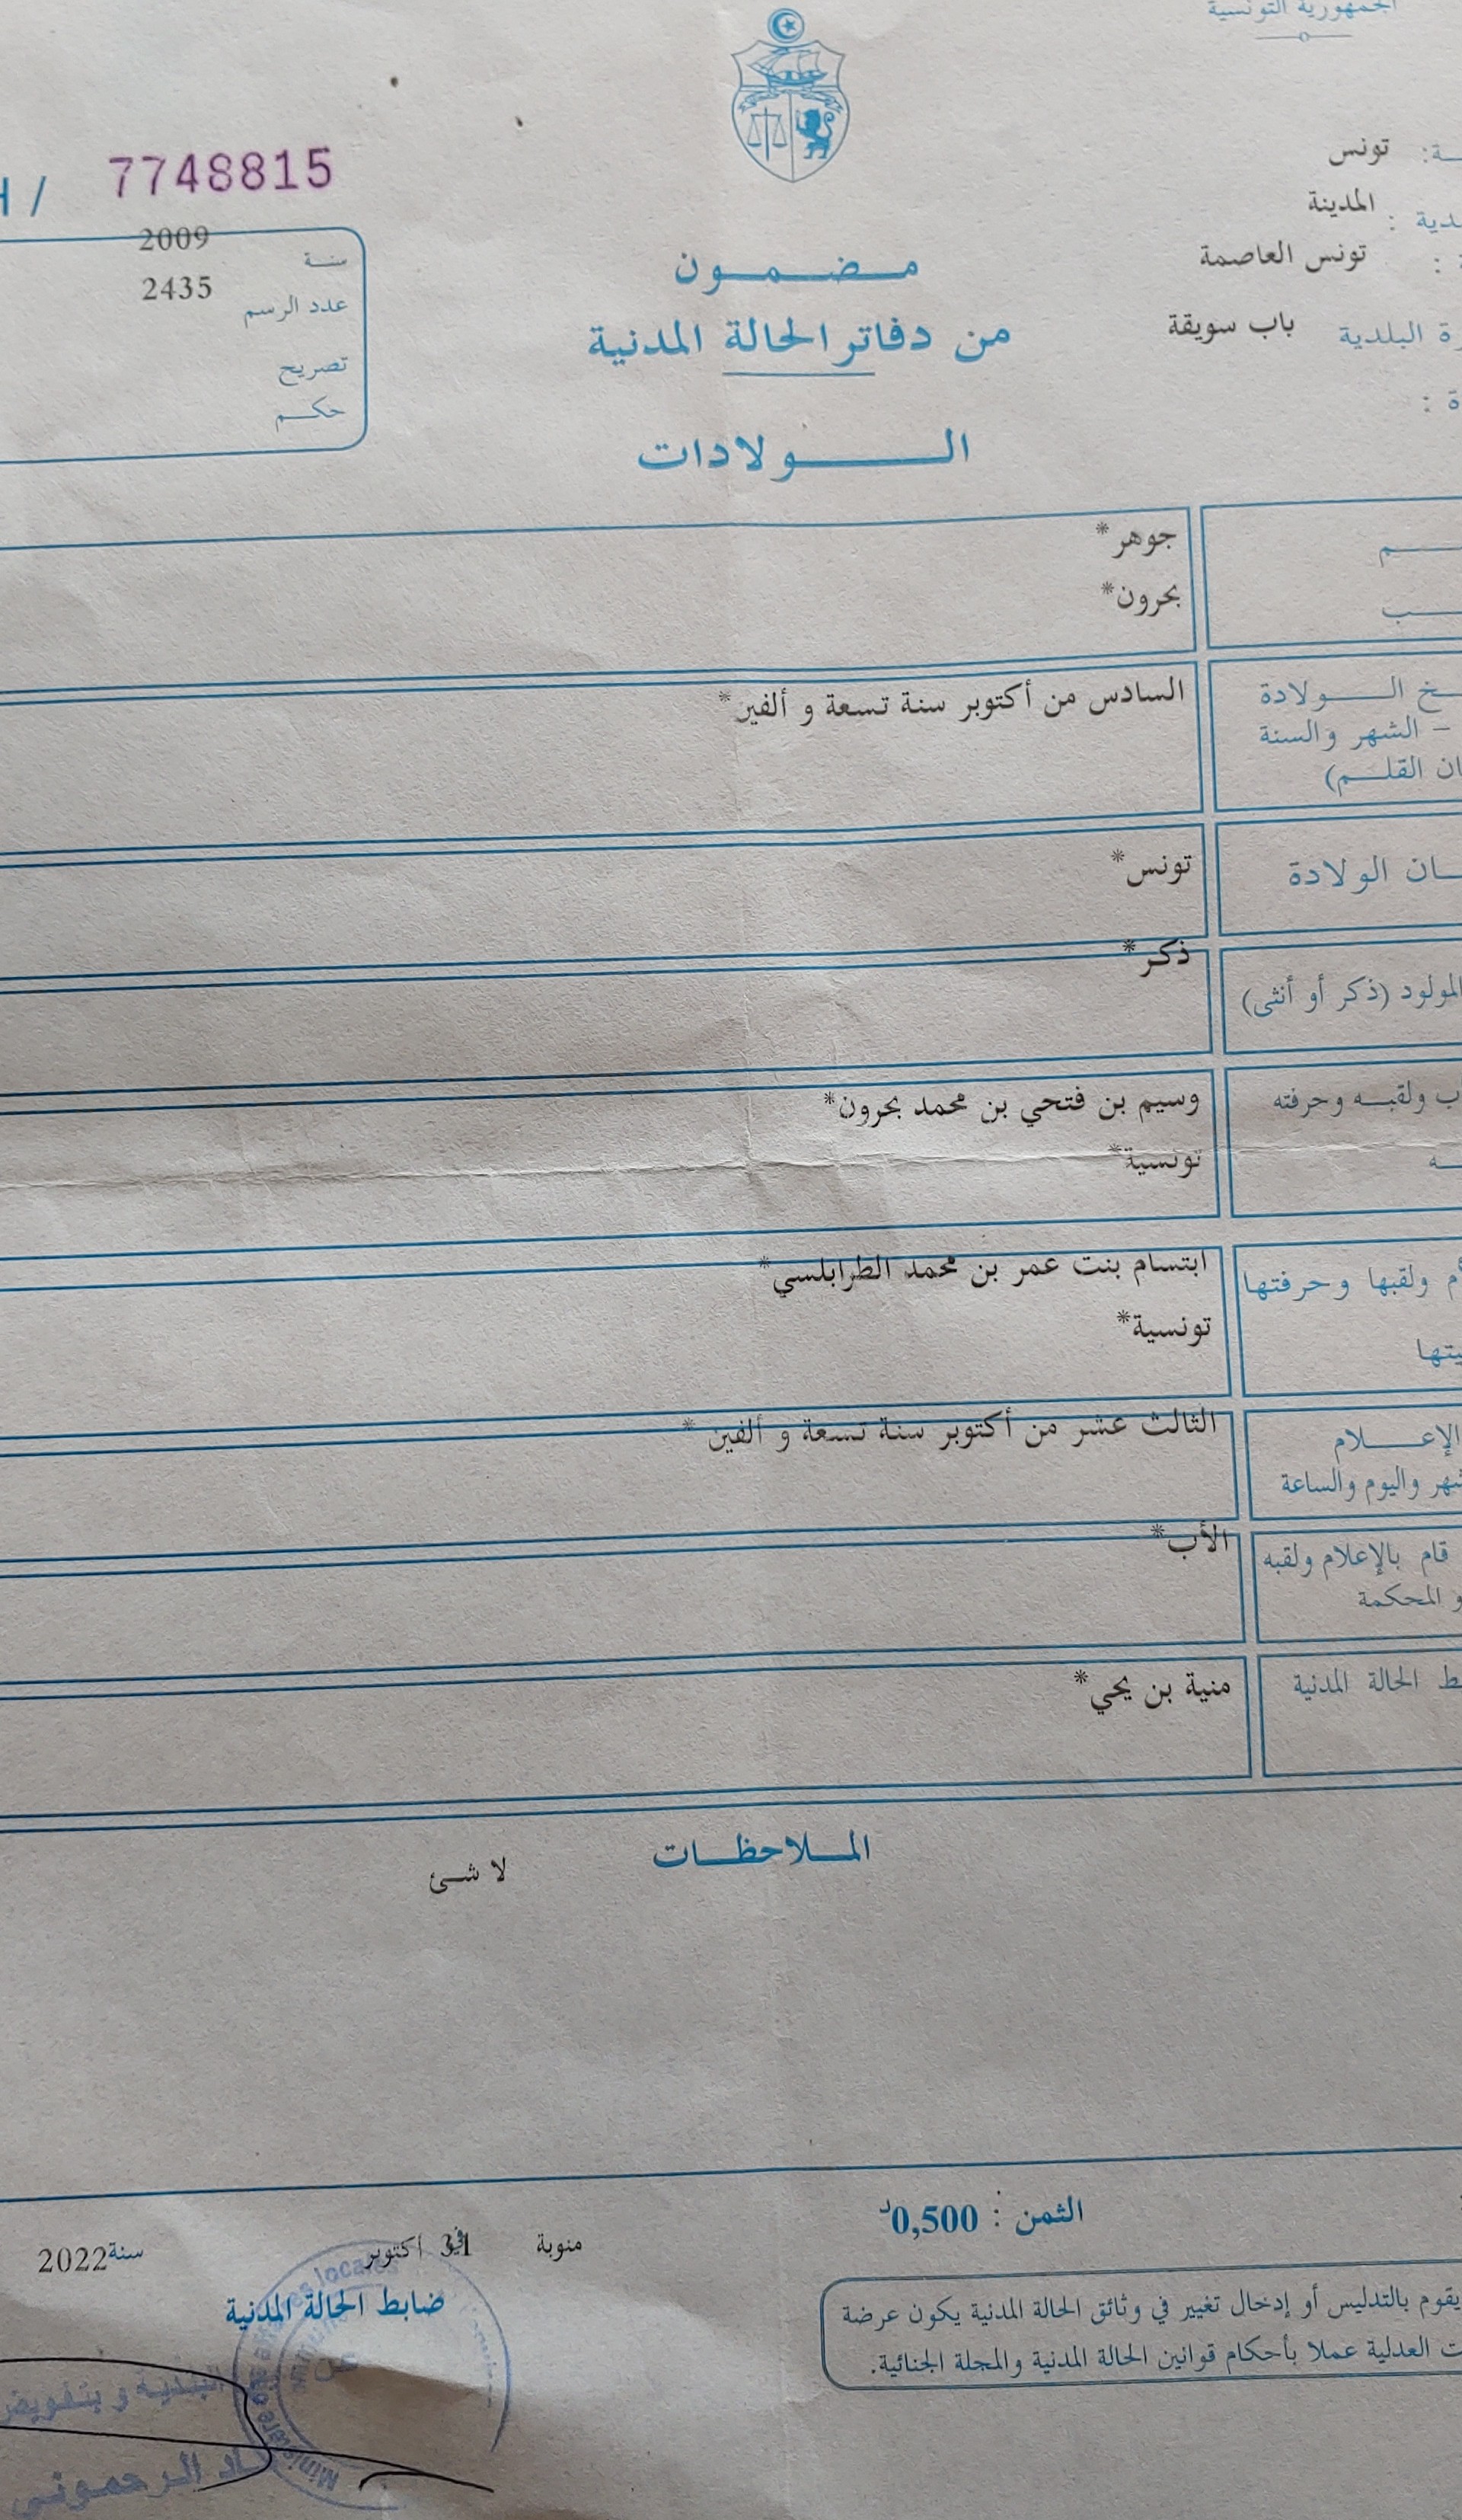 الجمهورية التونسية
7748815
تونس
المدينة
تونس العاصمة
البلدية باب سويقة
سنة 2009
عدد الرسم 2435
تصريح
حكم
مضمون
من دفاتر الحالة المدنية
الولادات
جوهر*
بحرون*
الولادة السادس من أكتوبر سنة تسعة و ألفين*
- الشهر والسنة
القلم)
الولادة تونس*
المولود (ذكر أو أنثى) ذكر*
ولقبه وحرفته وسيم بن فتحي بن محمد بحرون*
تونسية*
ولقبها وحرفتها ابتسام بنت عمر بن محمد الطرابلسي*
تونسية*
الإعلام الثالث عشر من أكتوبر سنة تسعة و ألفين*
واليوم والساعة
قام بالإعلام ولقبه الأب*
المحكمة
الحالة المدنية منية بن يحي*
الملاحظات
لا شئ
الثمن : 0,500د
منوبة في 31 أكتوبر سنة 2022
ضابط الحالة المدنية
يقوم بالتدليس أو إدخال تغيير في وثائق الحالة المدنية يكون عرضة
العدلية عملا بأحكام قوانين الحالة المدنية والمجلة الجنائية.
البلدية و بتفويض
الرحموني